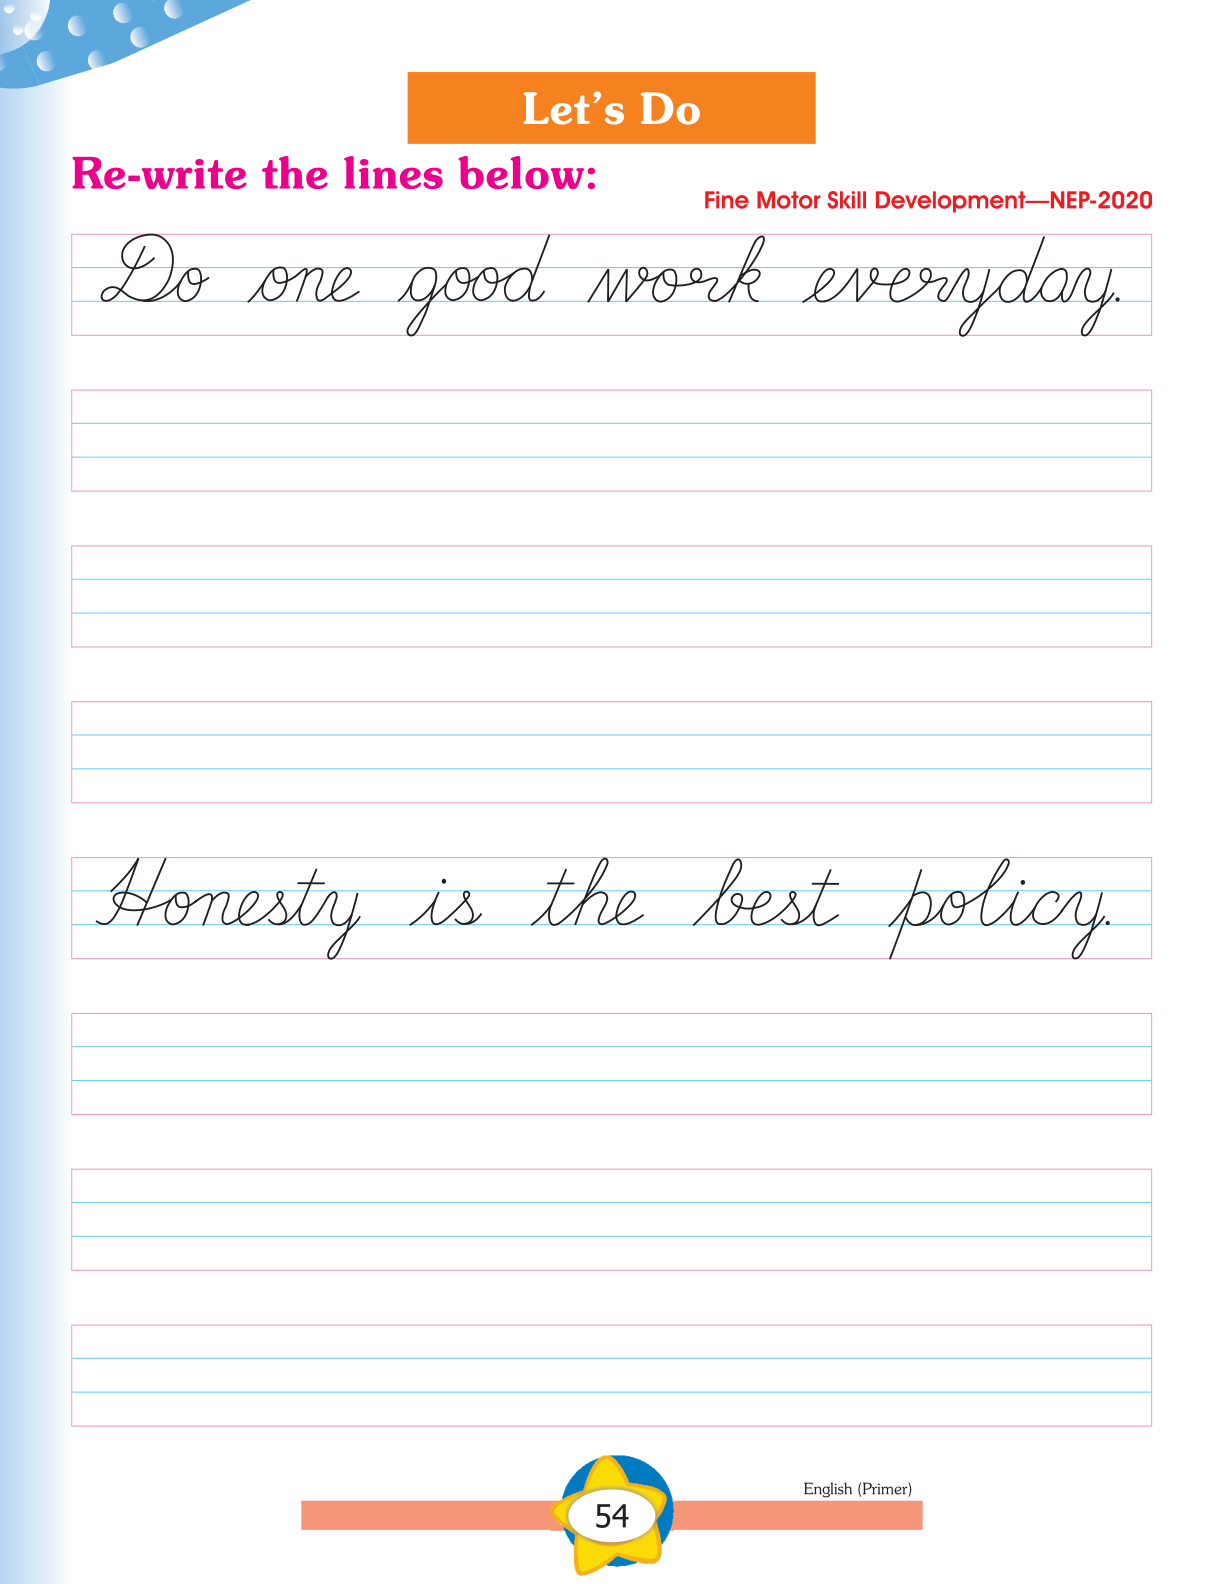 Let's Do
Re-write the lines below:
Fine Motor Skill Development—NEP-2020
Do one good work everyday.
Honesty is the best policy.
English (Primer)
54